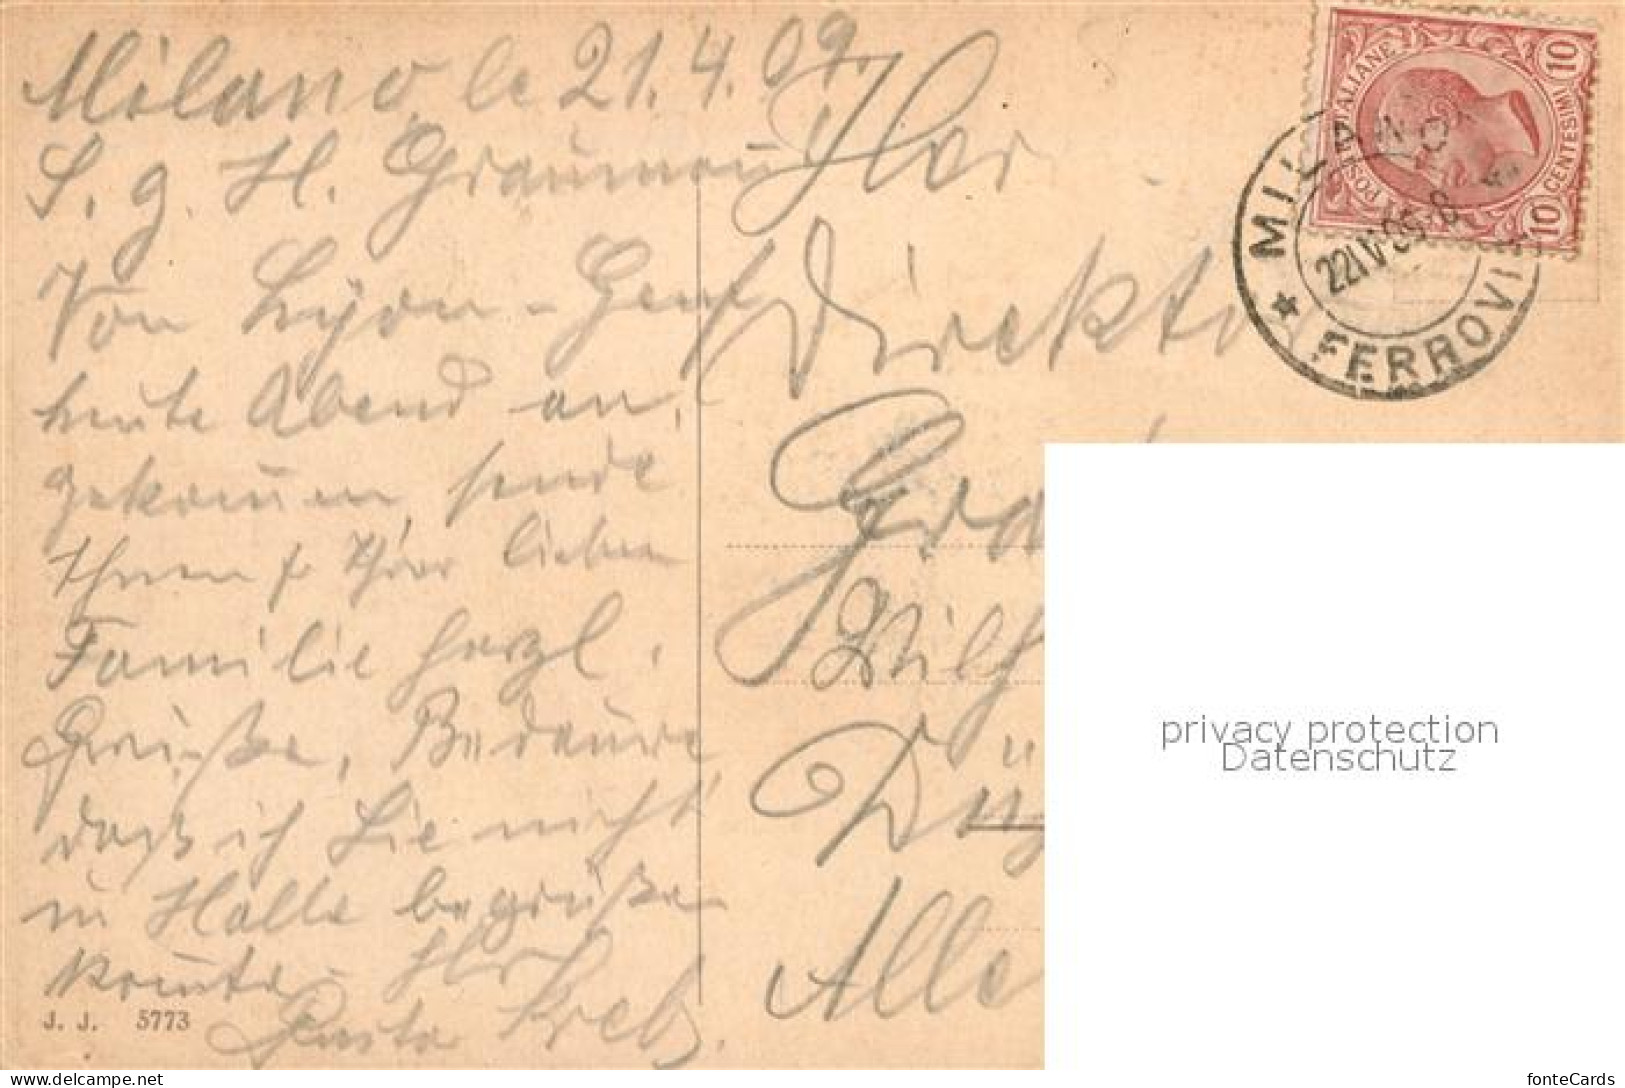 Milano, le 21. 4. 09.
S. g. H. Graumann
Von Lyon - Genf
heute Abend an,
gekommen, sende
Ihnen & Ihrer lieben
Familie herzl.
Grüße, Bedaure,
daß ich Sie nicht
in Halle begrüßen
konnte. Ihr
Gustav Krebs.
J. J. 5773
Herr
Direkto
Gra
Wilh
Alle
POSTE ITALIANE
10 CENTESIMI 10
MILANO
FERROVIA
22 IV 09 - 8
privacy protection
Datenschutz
www.delcampe.net
fonteCards